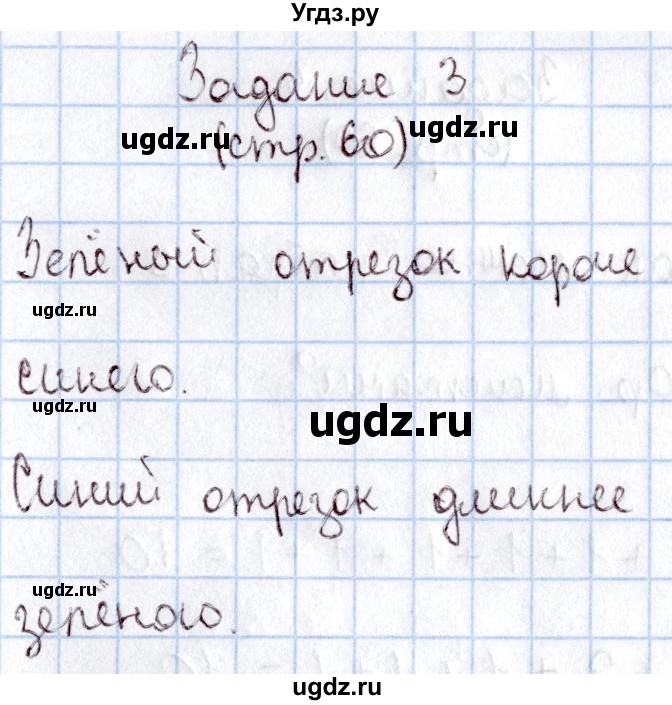 Угдз.ру
Задание 3
ugdz.ru
ugdz.ru
(стр. 60)
Зелёный отрезок короче
ugdz.ru
синего.
ugdz.ru
ugdz.ru
Синий отрезок длиннее
ugdz.ru
зелёного.
ugdz.ru